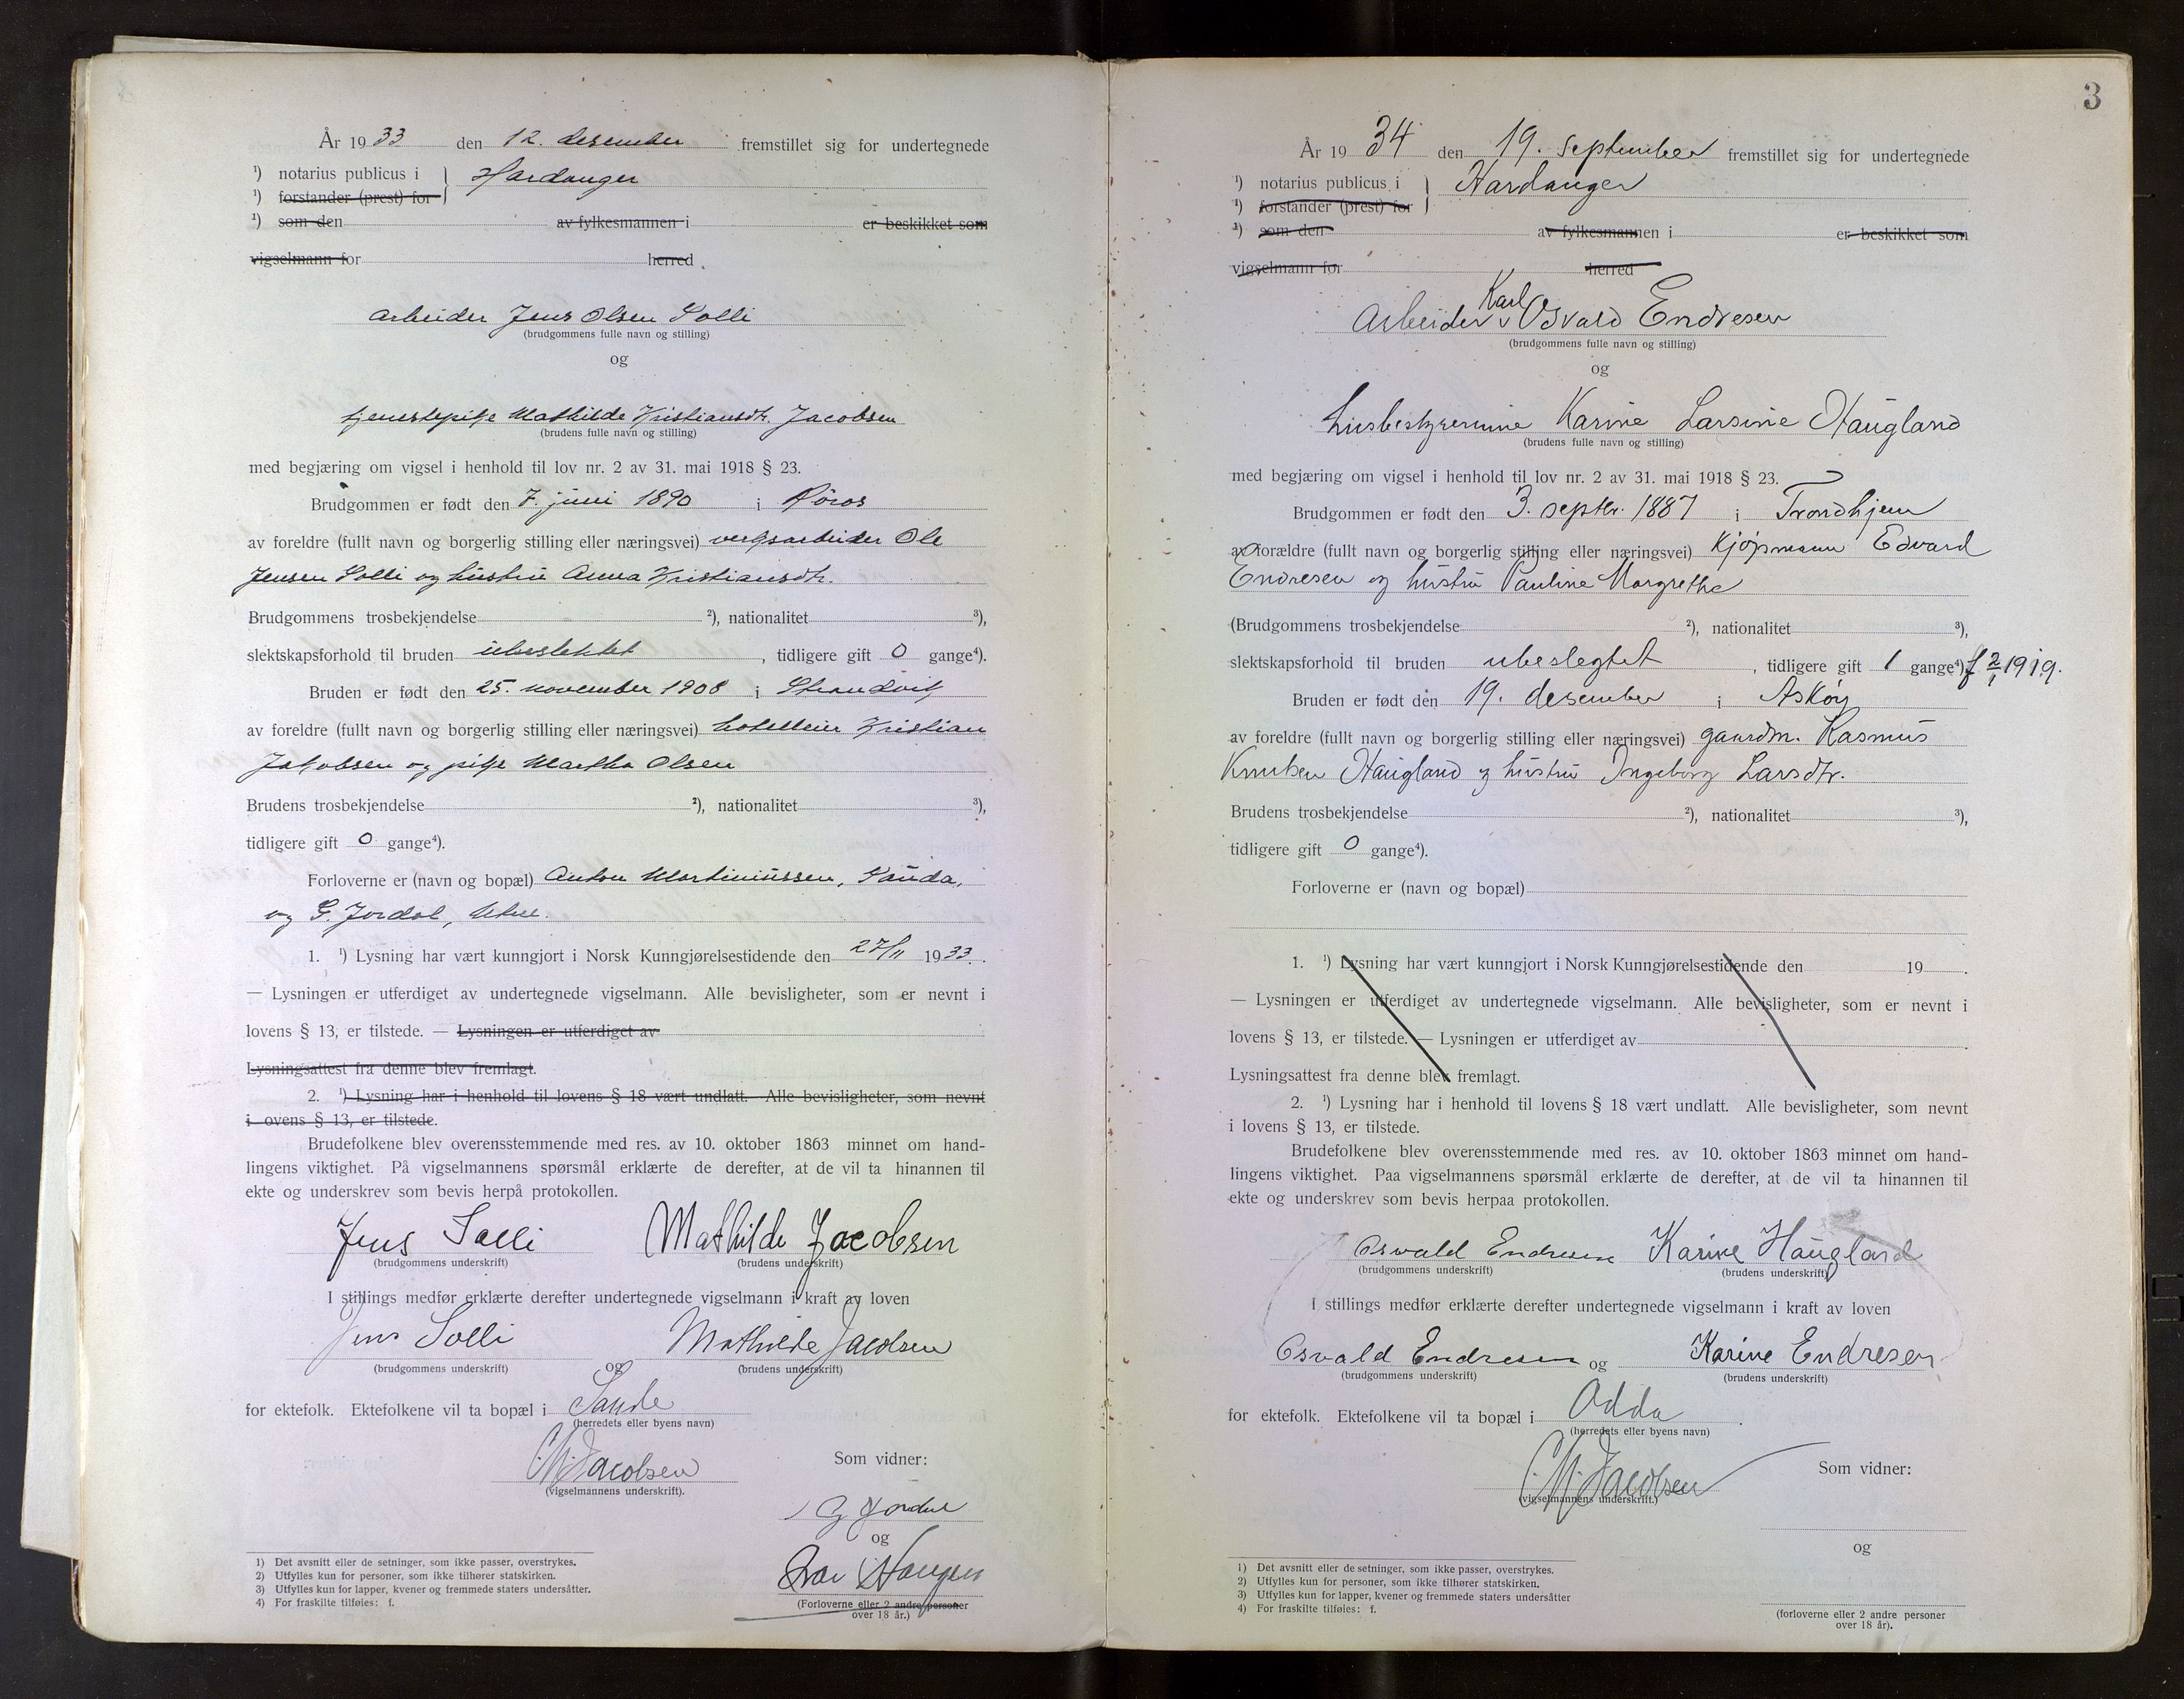 År 1933 den 12. desember fremstillet sig for undertegnede
¹) notarius publicus i Hardanger
¹) forstander (prest) for
¹) som den av fylkesmannen i er beskikket som
vigselmann for herred
arbeider Jens Olsen Solli
(brudgommens fulle navn og stilling)
og
tjenestepike Mathilde Kristiansdtr. Jacobsen
(brudens fulle navn og stilling)
med begjæring om vigsel i henhold til lov nr. 2 av 31. mai 1918 § 23.
Brudgommen er født den 7. juni 1890 i Röros
av foreldre (fullt navn og borgerlig stilling eller næringsvei) verksarbeider Ole
Jensen Solli og hustru Anna Kristiansdtr.
Brudgommens trosbekjendelse ²), nationalitet ³),
slektskapsforhold til bruden ubeslektet, tidligere gift 0 gange⁴).
Bruden er født den 25. november 1908 i Strandvik
av foreldre (fullt navn og borgerlig stilling eller næringsvei) hotelleier Kristian
Jakobsen og pike Martha Olsen
Brudens trosbekjendelse ²), nationalitet ³),
tidligere gift 0 gange⁴).
Forloverne er (navn og bopæl) Anton Martiniussen, Sauda,
og G. Jordal, Utne.
1. ¹) Lysning har vært kunngjort i Norsk Kunngjørelsestidende den 27/11 1933.
— Lysningen er utferdiget av undertegnede vigselmann. Alle bevisligheter, som er nevnt i
lovens § 13, er tilstede. — Lysningen er utferdiget av
Lysningsattest fra denne blev fremlagt.
2. ¹) Lysning har i henhold til lovens § 18 vært undlatt. Alle bevisligheter, som nevnt
i ovens § 13, er tilstede.
Brudefolkene blev overensstemmende med res. av 10. oktober 1863 minnet om hand-
lingens viktighet. På vigselmannens spørsmål erklærte de derefter, at de vil ta hinannen til
ekte og underskrev som bevis herpå protokollen.
Jens Solli Mathilde Jacobsen
(brudgommens underskrift) (brudens underskrift)
I stillings medfør erklærte derefter undertegnede vigselmann i kraft av loven
Jens Solli og Mathilde Jacobsen
(brudgommens underskrift) (brudens underskrift)
for ektefolk. Ektefolkene vil ta bopæl i Saude
(herredets eller byens navn)
C.M. Jacobsen
(vigselmannens underskrift).
Som vidner:
G Jordal
og
(Forloverne eller 2 andre personer
over 18 år.)
1) Det avsnitt eller de setninger, som ikke passer, overstrykes.
2) Utfylles kun for personer, som ikke tilhører statskirken.
3) Utfylles kun for lapper, kvener og fremmede staters undersåtter.
4) For fraskilte tilføies: f.
3
År 1934 den 19. september fremstillet sig for undertegnede
¹) notarius publicus i Hardanger
¹) forstander (prest) for
¹) som den av fylkesmannen i er beskikket som
vigselmann for herred
Karl
Arbeider v Osvald Endresen
(brudgommens fulle navn og stilling)
og
husbestyrerinne Karine Larsine Haugland
(brudens fulle navn og stilling)
med begjæring om vigsel i henhold til lov nr. 2 av 31. mai 1918 § 23.
Brudgommen er født den 3. septbr. 1887 i Trondhjem
av forældre (fullt navn og borgerlig stilling eller næringsvei) Kjøpmann Edvard
Endresen og hustru Pauline Margrethe
(Brudgommens trosbekjendelse ²), nationalitet ³),
slektskapsforhold til bruden ubeslegtet, tidligere gift 1 gange⁴) f 2/1 1919.
Bruden er født den 19. desember i Askøy
av foreldre (fullt navn og borgerlig stilling eller næringsvei) gaardm. Rasmus
Knutsen Haugland og hustru Ingeborg Larsdtr.
Brudens trosbekjendelse ²), nationalitet ³),
tidligere gift 0 gange⁴).
Forloverne er (navn og bopæl)
1. ¹) Lysning har vært kunngjort i Norsk Kunngjørelsestidende den 19 .
— Lysningen er utferdiget av undertegnede vigselmann. Alle bevisligheter, som er nevnt i
lovens § 13, er tilstede. — Lysningen er utferdiget av
Lysningsattest fra denne blev fremlagt.
2. ¹) Lysning har i henhold til lovens § 18 vært undlatt. Alle bevisligheter, som nevnt
i lovens § 13, er tilstede.
Brudefolkene blev overensstemmende med res. av 10. oktober 1863 minnet om hand-
lingens viktighet. Paa vigselmannens spørsmål erklærte de derefter, at de vil ta hinannen til
ekte og underskrev som bevis herpaa protokollen.
Osvald Endresen Karine Haugland
(brudgommens underskrift) (brudens underskrift)
I stillings medfør erklærte derefter undertegnede vigselmann i kraft av loven
Osvald Endresen og Karine Endresen
(brudgommens underskrift) (brudens underskrift)
for ektefolk. Ektefolkene vil ta bopæl i Odda.
(herredets eller byens navn)
C.M. Jacobsen
(vigselmannens underskrift.)
Som vidner:
og
(forloverne eller 2 andre personer
over 18 år).
1) Det avsnitt eller de setninger, som ikke passer, overstrykes.
2) Utfylles kun for personer, som ikke tilhører statskirken.
3) Utfylles kun for lapper, kvener og fremmede staters undersåtter
4) For fraskilte tilføies: f.